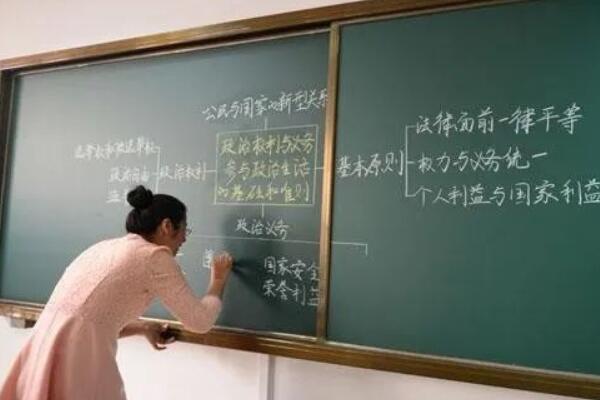 公民与国家的新型关系
选举权和被选举权
政治自由
监
政治权利
政治权利与义务
参与政治生活
的基础和准则
基本原则
法律面前一律平等
权力与义务统一
个人利益与国家利益
政治义务
国家安全
荣誉利益